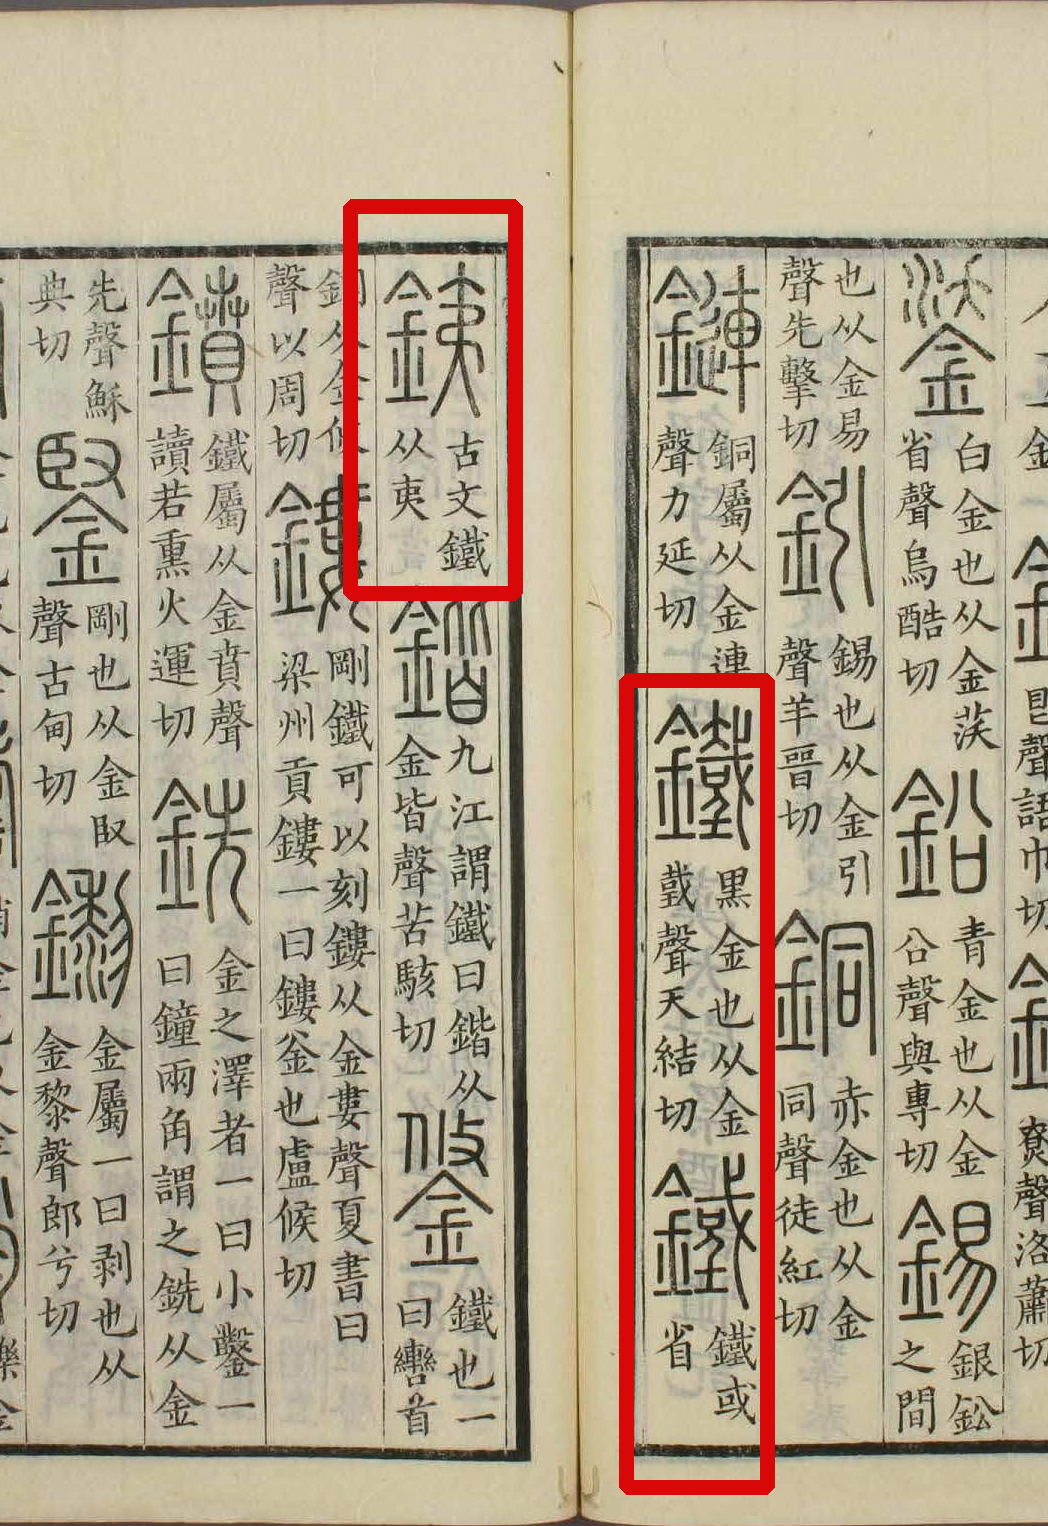 聲語巾切
尞聲洛蕭切
鋈
白金也从金𦭴
省聲烏酷切
鉛
青金也从金
㕣聲與專切
錫
銀鈆
之間
也从金易
聲先擊切
鈏
錫也从金引
聲羊晉切
銅
赤金也从金
同聲徒紅切
鏈
銅屬从金連
聲力延切
鐵
黑金也从金
𢧜聲天結切
䥫
鐵或
省
銕
古文鐵
从夷
鍇
九江謂鐵曰鍇从
金皆聲苦駭切
鋚
鐵也一
曰轡首
銅从金攸
聲以周切
鏤
剛鐵可以刻鏤从金婁聲夏書曰
梁州貢鏤一曰鏤釜也盧候切
鐼
鐵屬从金賁聲
讀若熏火運切
銑
金之澤者一曰小鑿一
曰鐘兩角謂之銑从金
先聲穌
典切
鋻
剛也从金臤
聲古甸切
鑗
金屬一曰剥也从
金黎聲郎兮切